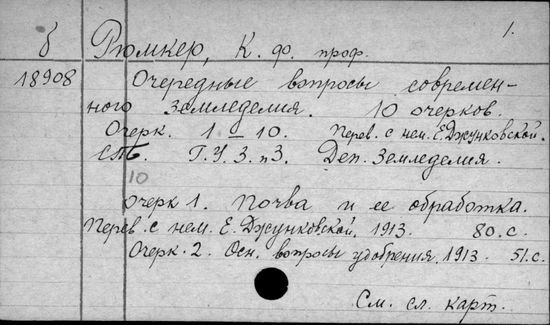 1.
б Рюмкер, К. ф. проф.
18908 Очередные вопросы современ-
ного земледелия. 10 очерков.
Очерк. 1 – 10. Перев. с нем. Е. Джунковской.
СПБ. Г.У.З. и З. Деп. Земледелия.
10
Очерк 1. Почва и ее обработка.
Перев. с нем. Е. Джунковской. 1913. 80. с.
Очерк. 2. Осн. вопросы удобрения. 1913. 51. с.
См. сл. карт.